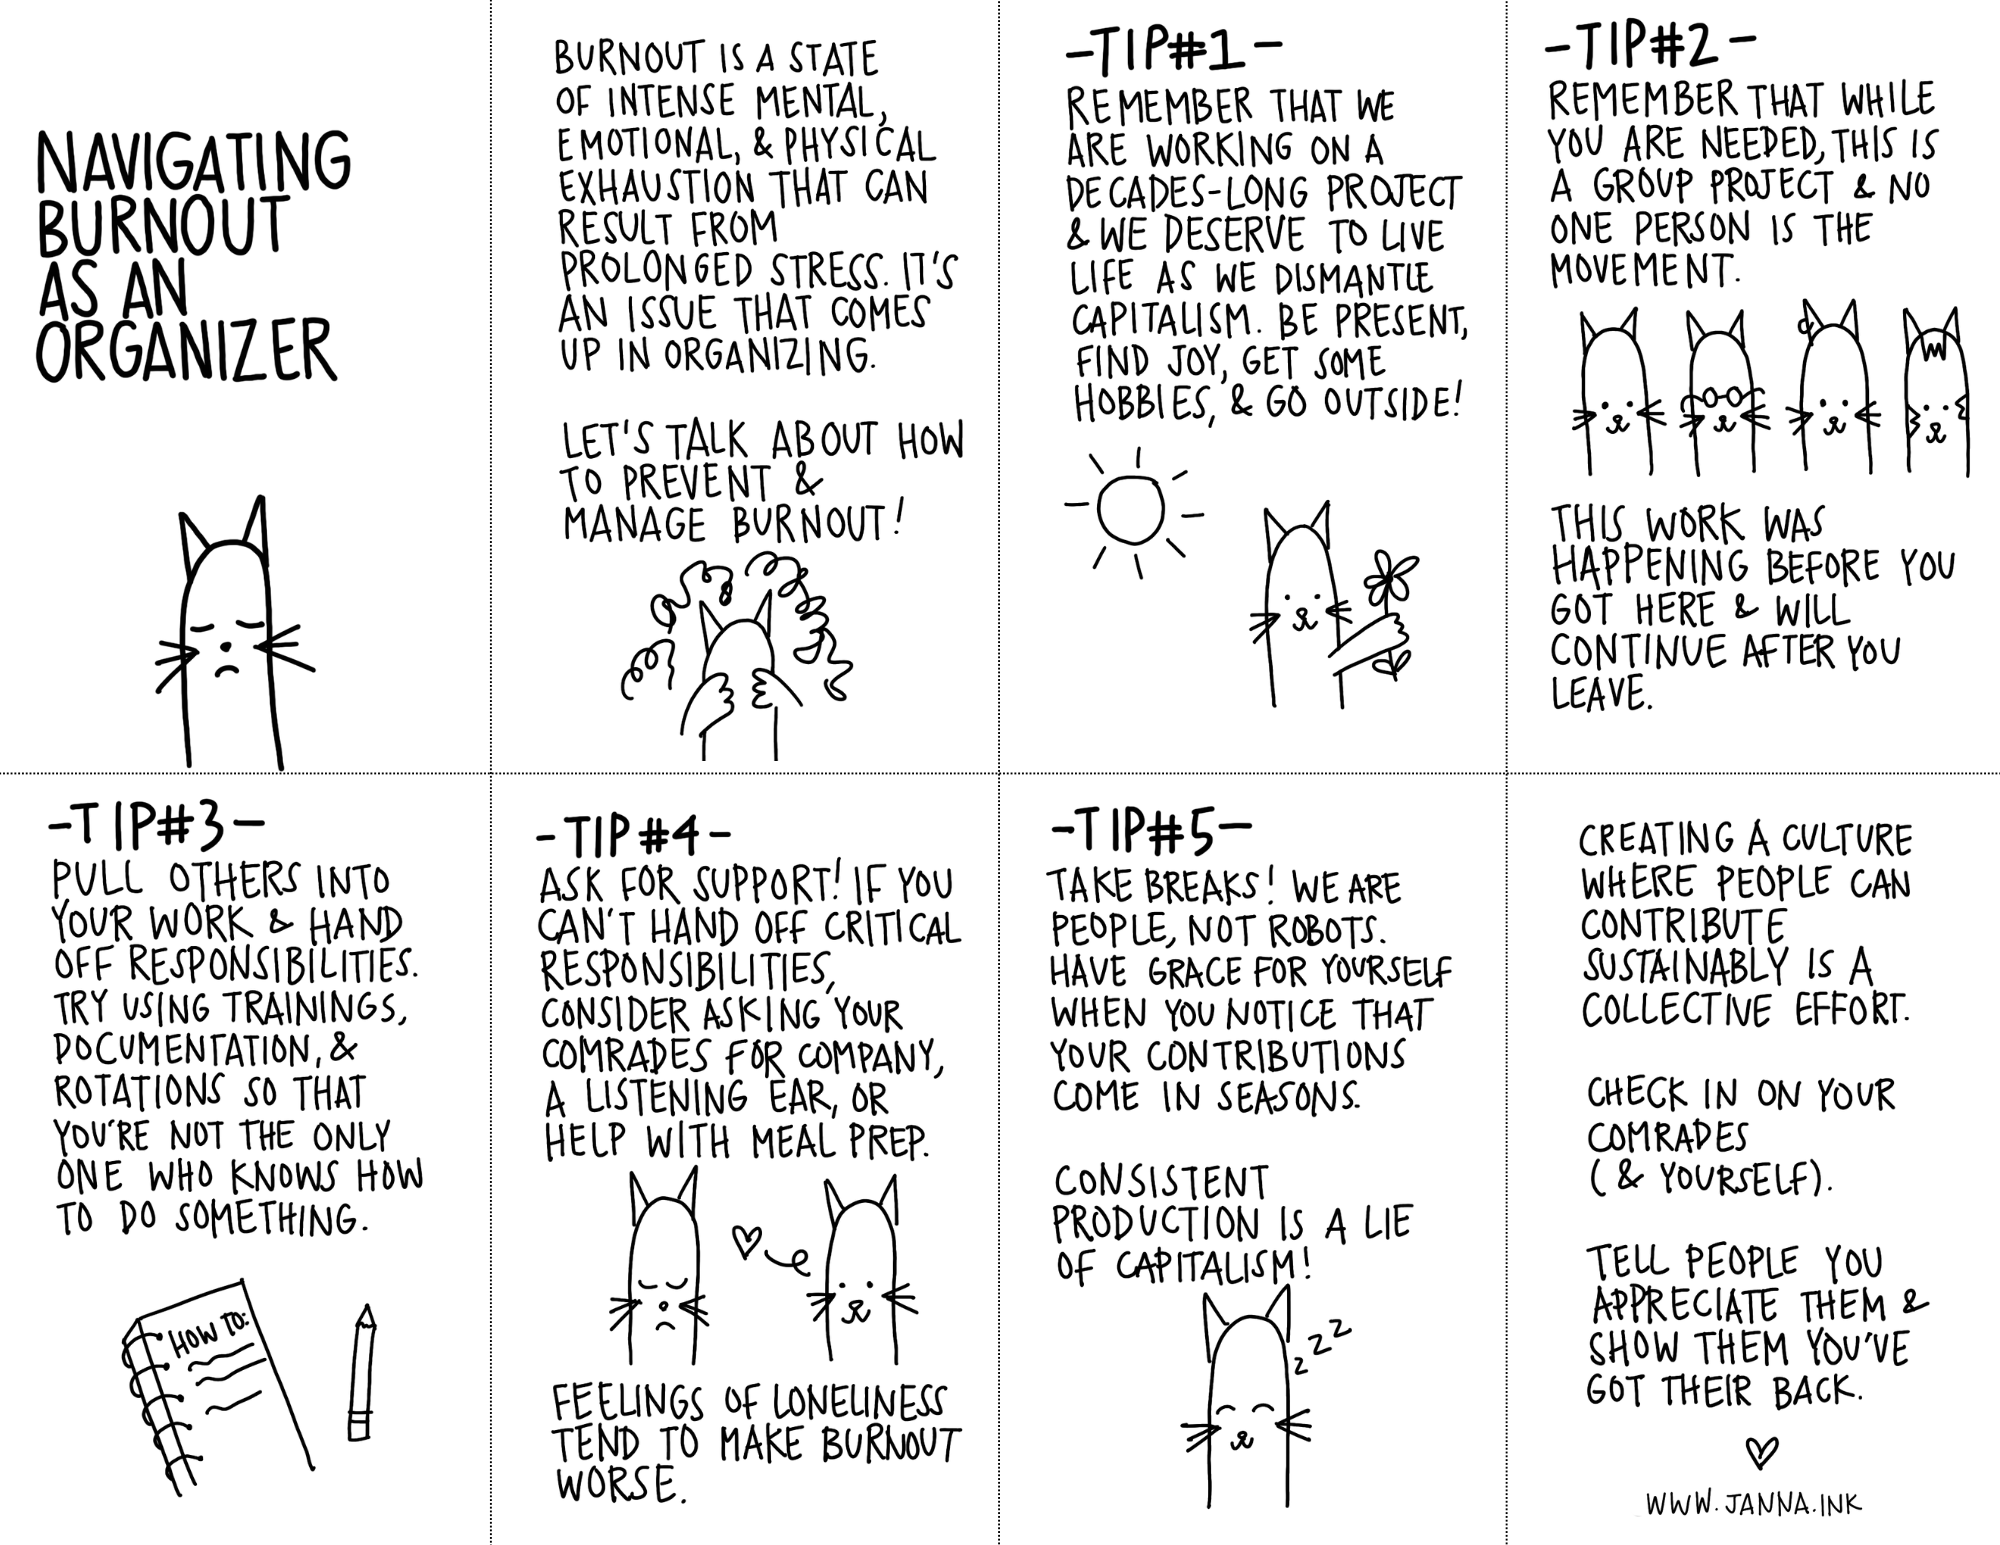 NAVIGATING
BURNOUT
AS AN
ORGANIZER
BURNOUT IS A STATE
OF INTENSE MENTAL,
EMOTIONAL, & PHYSICAL
EXHAUSTION THAT CAN
RESULT FROM
PROLONGED STRESS. IT'S
AN ISSUE THAT COMES
UP IN ORGANIZING.
LET'S TALK ABOUT HOW
TO PREVENT &
MANAGE BURNOUT!
-TIP#1-
REMEMBER THAT WE
ARE WORKING ON A
DECADES-LONG PROJECT
& WE DESERVE TO LIVE
LIFE AS WE DISMANTLE
CAPITALISM. BE PRESENT,
FIND JOY, GET SOME
HOBBIES, & GO OUTSIDE!
-TIP#2-
REMEMBER THAT WHILE
YOU ARE NEEDED, THIS IS
A GROUP PROJECT & NO
ONE PERSON IS THE
MOVEMENT.
THIS WORK WAS
HAPPENING BEFORE YOU
GOT HERE & WILL
CONTINUE AFTER YOU
LEAVE.
-TIP#3-
PULL OTHERS INTO
YOUR WORK & HAND
OFF RESPONSIBILITIES.
TRY USING TRAININGS,
DOCUMENTATION, &
ROTATIONS SO THAT
YOU'RE NOT THE ONLY
ONE WHO KNOWS HOW
TO DO SOMETHING.
HOW TO:
-TIP #4-
ASK FOR SUPPORT! IF YOU
CAN'T HAND OFF CRITICAL
RESPONSIBILITIES,
CONSIDER ASKING YOUR
COMRADES FOR COMPANY,
A LISTENING EAR, OR
HELP WITH MEAL PREP.
FEELINGS OF LONELINESS
TEND TO MAKE BURNOUT
WORSE.
-TIP#5-
TAKE BREAKS! WE ARE
PEOPLE, NOT ROBOTS.
HAVE GRACE FOR YOURSELF
WHEN YOU NOTICE THAT
YOUR CONTRIBUTIONS
COME IN SEASONS.
CONSISTENT
PRODUCTION IS A LIE
OF CAPITALISM!
Z Z Z
CREATING A CULTURE
WHERE PEOPLE CAN
CONTRIBUTE
SUSTAINABLY IS A
COLLECTIVE EFFORT.
CHECK IN ON YOUR
COMRADES
(& YOURSELF).
TELL PEOPLE YOU
APPRECIATE THEM &
SHOW THEM YOU'VE
GOT THEIR BACK.
WWW.JANNA.INK